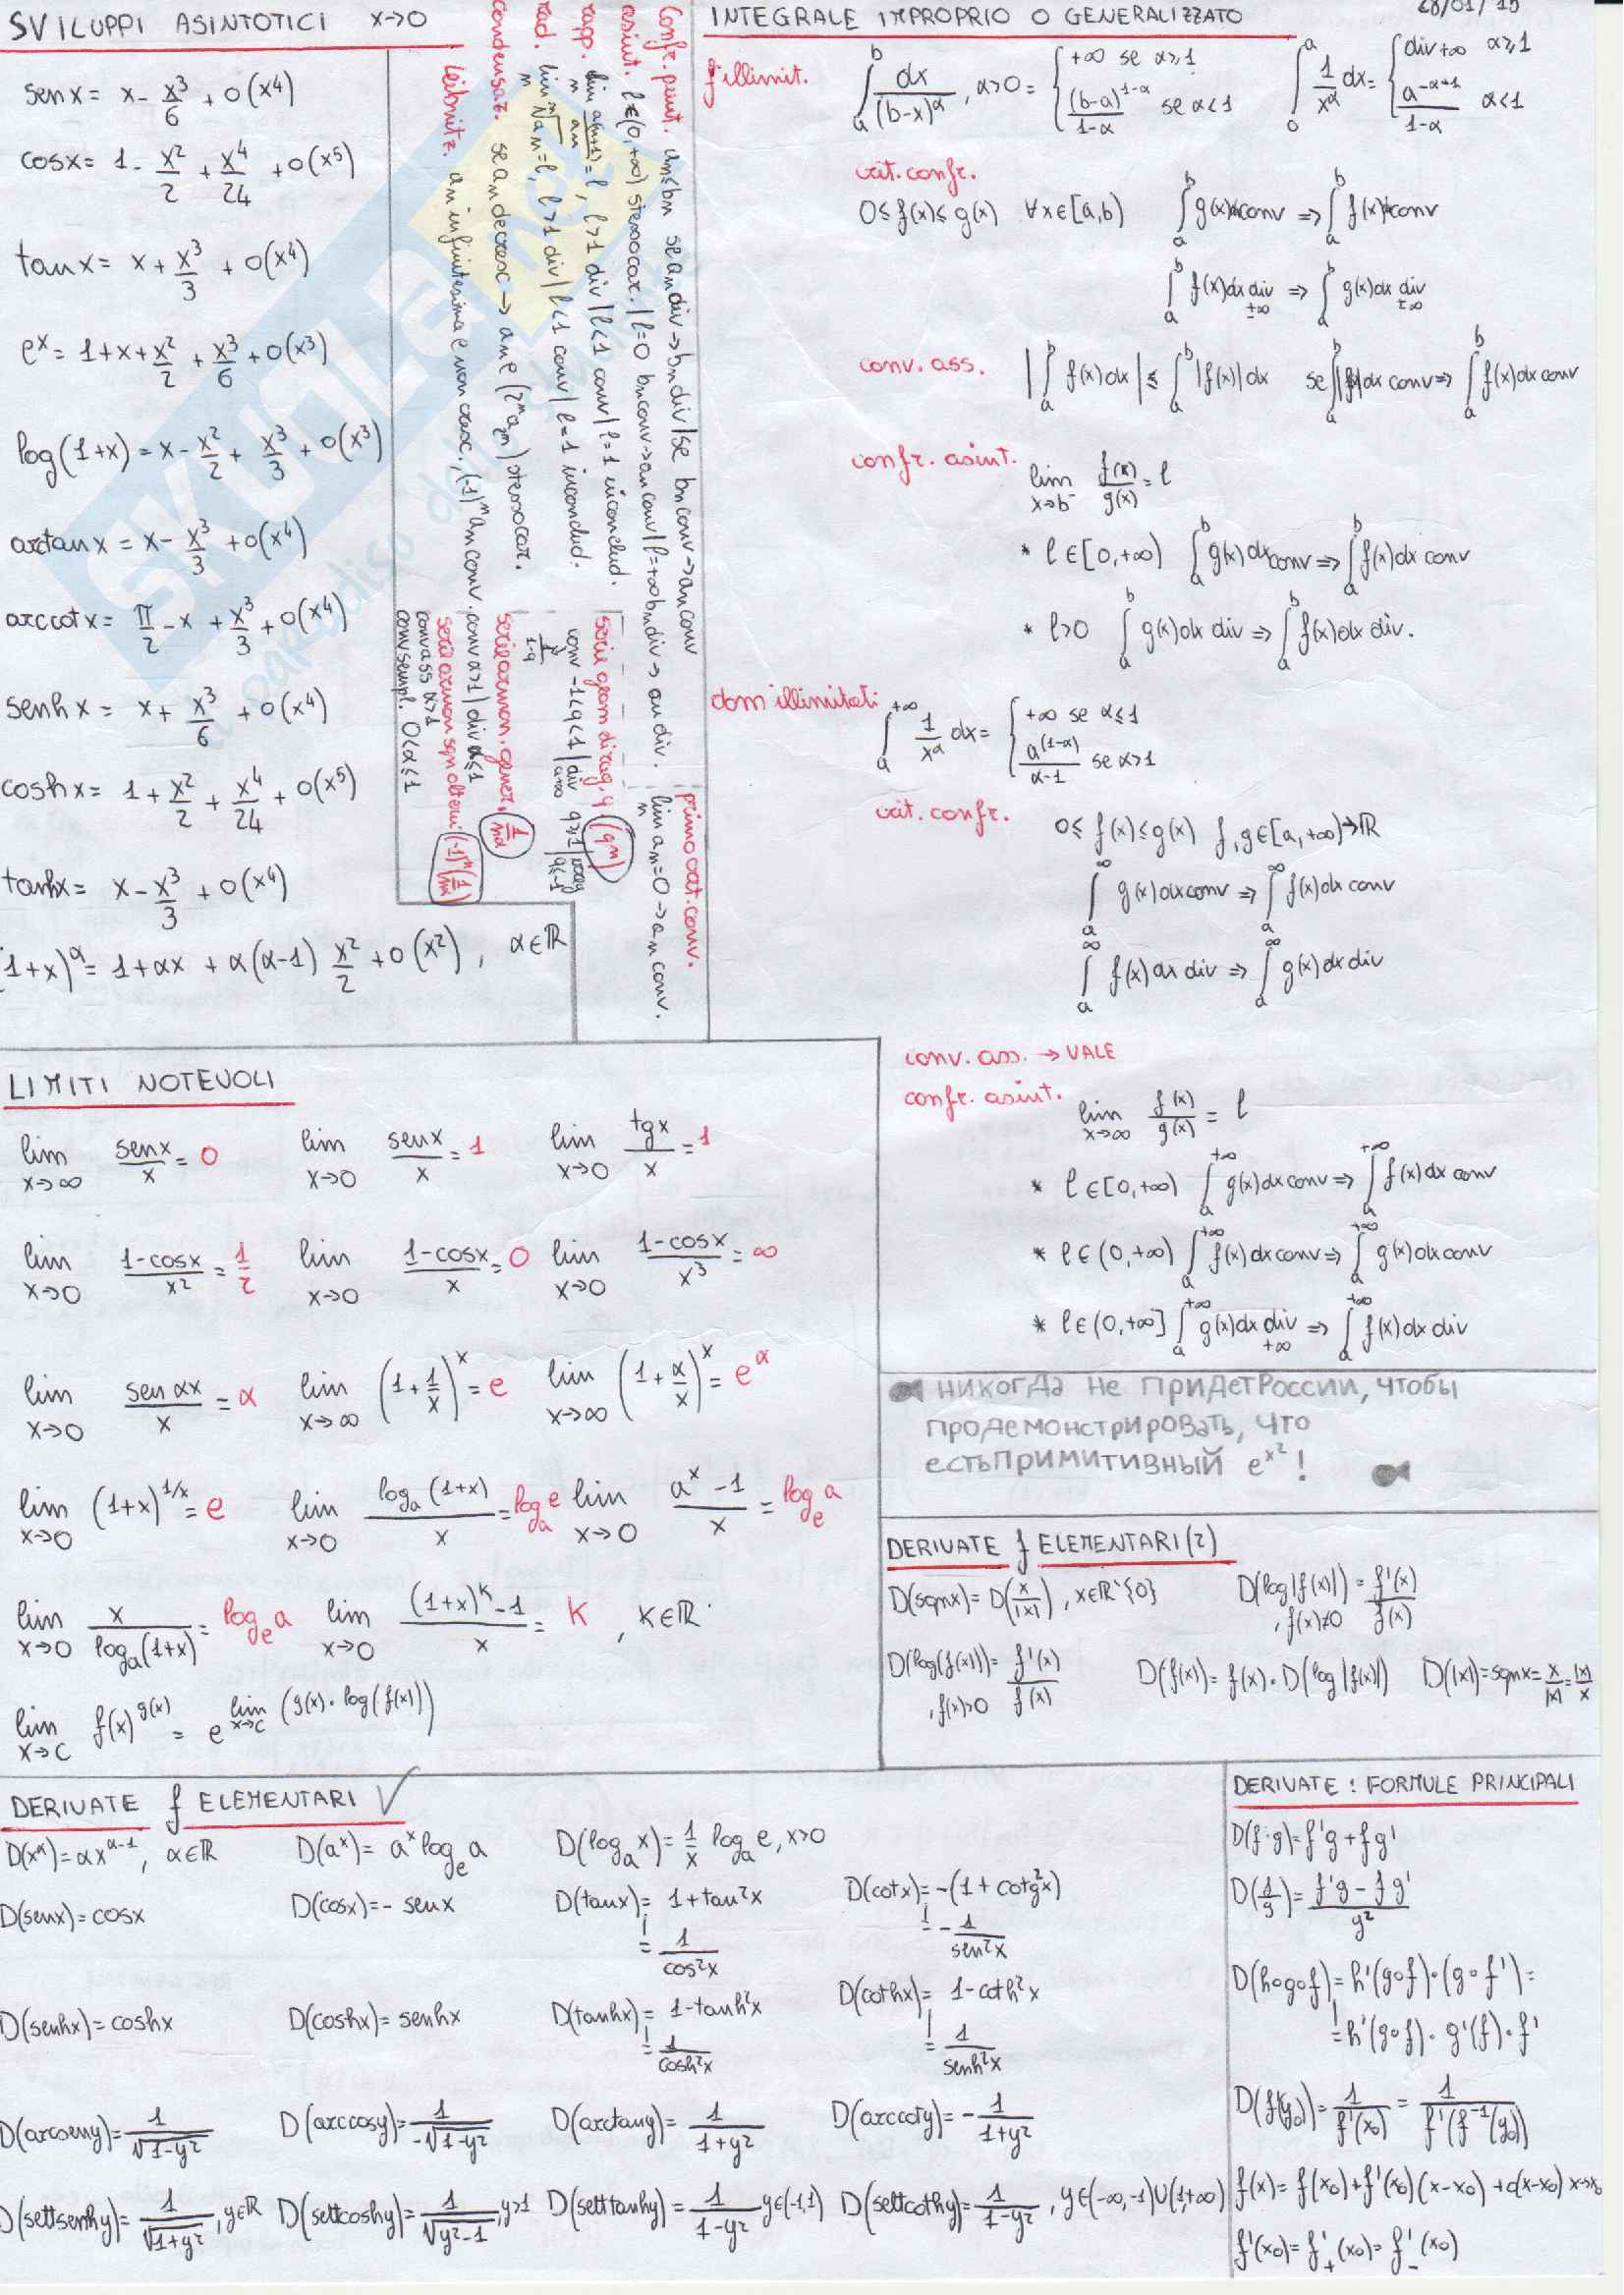 SVILUPPI ASINTOTICI x→0
senx = x - x³/6 + o(x⁴)
cosx = 1 - x²/2 + x⁴/24 + o(x⁵)
tanx = x + x³/3 + o(x⁴)
eˣ = 1+x+x²/2 + x³/6 + o(x³)
log(1+x) = x - x²/2 + x³/3 + o(x³)
arctanx = x - x³/3 + o(x⁴)
arccotx = π/2 - x + x³/3 + o(x⁴)
senhx = x + x³/6 + o(x⁴)
coshx = 1 + x²/2 + x⁴/24 + o(x⁵)
tanhx = x - x³/3 + o(x⁴)
(1+x)^α = 1+αx + α(α-1) x²/2 + o(x²), α∈ℝ
Confr. punt. an≤bn se an div → bn div | se bn conv → an conv
asint. l∈(0,+∞) stesso car. | l=0 bn conv → an conv | l=+∞ bn div → an div.
rapp. lim n a(n+1)/an = l, l>1 div | l<1 conv | l=1 inconclud.
rad. lim n ⁿ√an = l, l>1 div | l<1 conv | l=1 inconclud.
condensaz. se an decresc → an e (2ⁿa₂ⁿ) stesso car.
Leibnitz. an infinitesima e non cresc., (-1)ⁿ an conv.
primo cat. conv.
lim n an=0 → an conv.
serie geom di rag. q (qⁿ)
conv -1<q<1 | div a+∞ q≥1 | q≤-1
1/1-q
serie armon. gener. 1/nα
conv α>1 | div α≤1
serie armon segn alterni (-1)ⁿ(1/nα)
conv ass α>1
conv sempl. 0<α≤1
INTEGRALE IMPROPRIO O GENERALIZZATO
28/01/15
f illimit.
∫ₐᵇ dx/(b-x)^α, α>0 = { +∞ se α≥1
(b-a)^(1-α)/(1-α) se α<1
∫₀ᵃ 1/x^α dx = { div+∞ α≥1
a^(-α+1)/(1-α) α<1
crit. confr.
0≤f(x)≤g(x) ∀x∈[a,b) ∫ₐᵇ g(x)dx conv ⇒ ∫ₐᵇ f(x)dx conv
∫ₐᵇ f(x)dx div ±∞ ⇒ ∫ₐᵇ g(x)dx div ±∞
conv. ass. |∫ₐᵇ f(x)dx| ≤ ∫ₐᵇ |f(x)|dx se ∫ₐᵇ |f|dx conv ⇒ ∫ₐᵇ f(x)dx conv
confr. asint. lim x→b⁻ f(x)/g(x) = l
* l∈[0,+∞) ∫ₐᵇ g(x)dx conv ⇒ ∫ₐᵇ f(x)dx conv
* l>0 ∫ₐᵇ g(x)dx div ⇒ ∫ₐᵇ f(x)dx div.
dom illimitati
∫ₐ^+∞ 1/x^α dx = { +∞ se α≤1
a^(1-α)/(α-1) se α>1
crit. confr.
0≤ f(x)≤g(x) f,g∈[a,+∞)→ℝ
∫ₐ^∞ g(x)dx conv ⇒ ∫ₐ^∞ f(x)dx conv
∫ₐ^∞ f(x)dx div ⇒ ∫ₐ^∞ g(x)dx div
conv. ass. → VALE
confr. asint. lim x→∞ f(x)/g(x) = l
* l∈[0,+∞) ∫ₐ^+∞ g(x)dx conv ⇒ ∫ₐ^+∞ f(x)dx conv
* l∈(0,+∞) ∫ₐ^+∞ f(x)dx conv ⇒ ∫ₐ^+∞ g(x)dx conv
* l∈(0,+∞] ∫ₐ^+∞ g(x)dx div +∞ ⇒ ∫ₐ^+∞ f(x)dx div
никогда не придетРоссии, чтобы
продемонстрировать, что
естьпримитивный e^x² !
LIMITI NOTEVOLI
lim x→∞ senx/x = 0 lim x→0 senx/x = 1 lim x→0 tgx/x = 1
lim x→0 1-cosx/x² = 1/2 lim x→0 1-cosx/x = 0 lim x→0 1-cosx/x³ = ∞
lim x→0 senαx/x = α lim x→∞ (1+1/x)ˣ = e lim x→∞ (1+α/x)ˣ = e^α
lim x→0 (1+x)^(1/x) = e lim x→0 logₐ(1+x)/x = logₐe lim x→0 aˣ-1/x = logₑa
lim x→0 x/logₐ(1+x) = logₑa lim x→0 (1+x)^K-1/x = K, K∈ℝ
lim x→c f(x)^g(x) = e^lim x→c (g(x)·log(f(x)))
DERIVATE f ELEMENTARI (2)
D(sgnx) = D(x/|x|), x∈ℝ\{0} D(log|f(x)|) = f'(x)/f(x)
, f(x)≠0
D(log(f(x))) = f'(x)/f(x) D(f(x)) = f(x)·D(log|f(x)|) D(|x|) = sgnx = x/|x| = |x|/x
, f(x)>0
DERIVATE f ELEMENTARI √
D(x^α) = αx^(α-1), α∈ℝ D(aˣ) = aˣ logₑa D(logₐx) = 1/x logₐe, x>0
D(senx) = cosx D(cosx) = - senx D(tanx) = 1+tan²x D(cotx) = -(1+cotg²x)
= 1/cos²x = -1/sen²x
D(senhx) = coshx D(coshx) = senhx D(tanhx) = 1-tanh²x D(cothx) = 1-coth²x
= 1/cosh²x = 1/senh²x
D(arcseny) = 1/√(1-y²) D(arccosy) = 1/-√(1-y²) D(arctany) = 1/(1+y²) D(arccoty) = -1/(1+y²)
D(settsenhy) = 1/√(1+y²), y∈ℝ D(settcoshy) = 1/√(y²-1), y>1 D(setttanhy) = 1/(1-y²) y∈(-1,1) D(settcothy) = 1/(1-y²), y∈(-∞,-1)∪(1,+∞)
DERIVATE : FORMULE PRINCIPALI
D(f·g) = f'g + fg'
D(f/g) = f'g - fg'/g²
D(h∘g∘f) = h'(g∘f)·(g∘f') =
= h'(g∘f)·g'(f)·f'
D(f⁻¹(y₀)) = 1/f'(x₀) = 1/f'(f⁻¹(y₀))
f(x) = f(x₀)+f'(x₀)(x-x₀) + o(x-x₀) x→x₀
f'(x₀) = f'₊(x₀) = f'₋(x₀)
SKUOLA.net